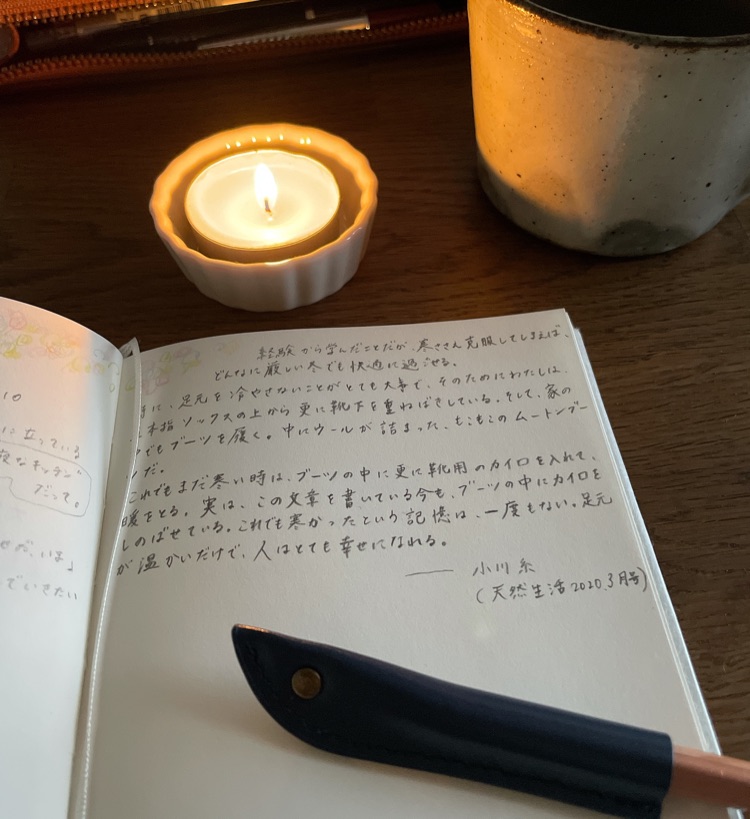 10
に立っている
なキッチン"
だって。
せだ、いま」
でいきたい
経験から学んだことだが、寒ささえ克服してしまえば、
どんなに厳しい冬でも快適に過ごせる。
に、足元を冷やさないことがとても大事で、そのためにわたしは、
本指ソックスの上から更に靴下を重ねばきしている。そして、家の
でもブーツを履く。中にウールが詰まった、もこもこのムートンブー
ツだ。
これでもまだ寒い時は、ブーツの中に更に靴用のカイロを入れて、
暖をとる。実は、この文章を書いている今も、ブーツの中にカイロを
しのばせている。これでも寒かったという記憶は、一度もない。足元
が温かいだけで、人はとても幸せになれる。
—— 小川糸
(天然生活2020.3月号)